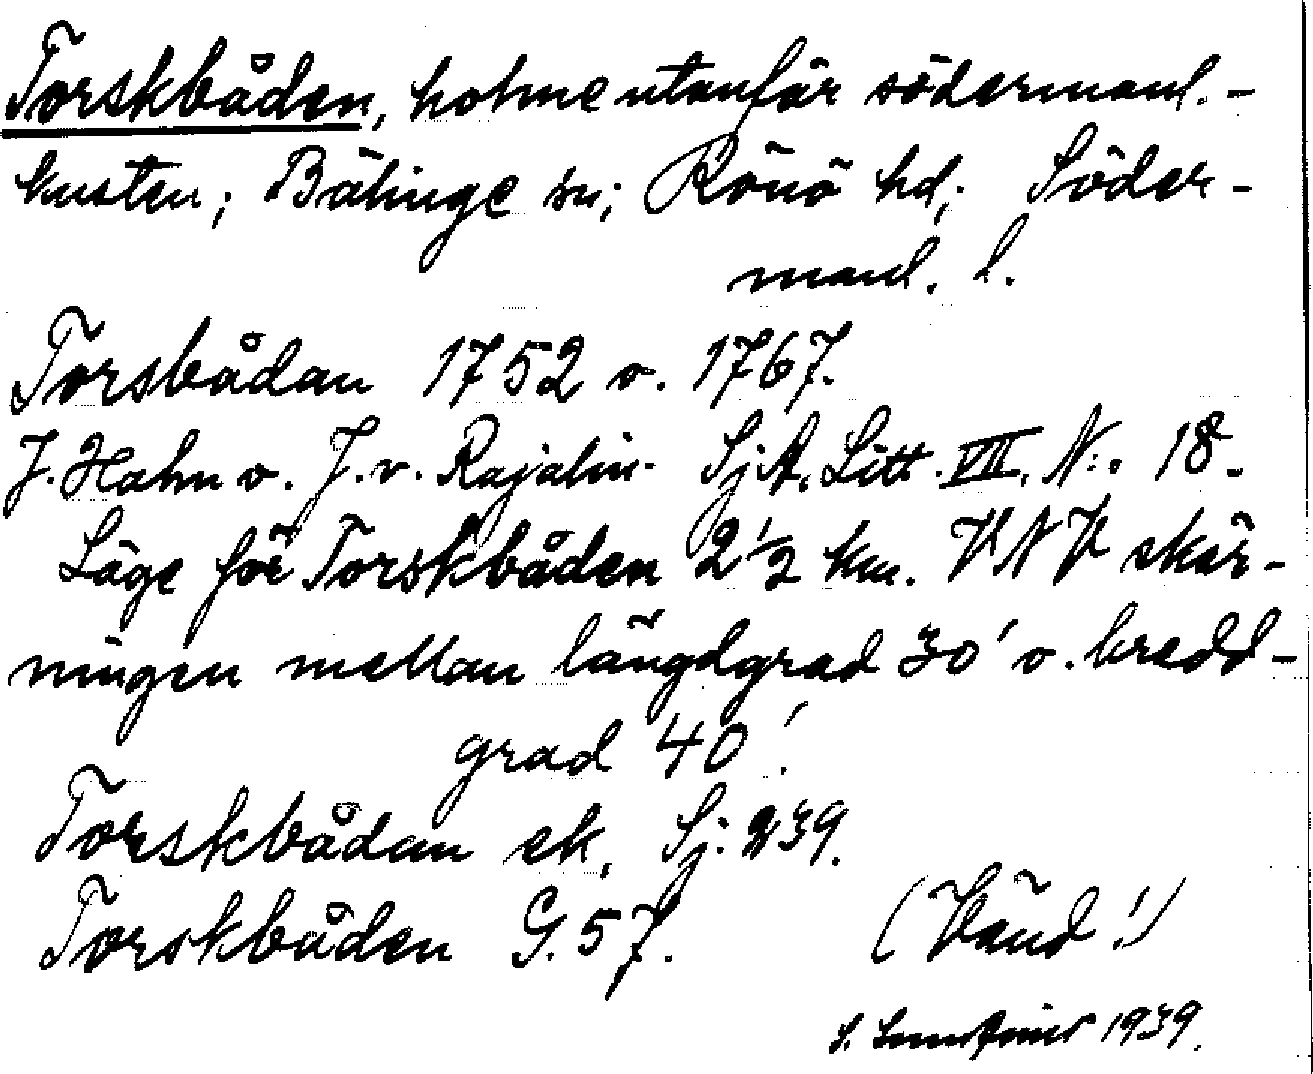 Torskbåden, holme utanför södermanl.-
kusten; Bälinge sn; Rönö hd; Söder-
manl. l.
Torsbådan 1752 o. 1767.
J. Hahn o. J. v. Rajalin. Sj.A. Litt. VII. N:. 18.
Läge för Torskbåden 2½ km. VNV skär-
ningen mellan längdgrad 30' o. bredd-
grad 40'.
Torskbådan ek. Sj. 239.
Torskbåden G. 57. (Vänd!)
S. 1939.